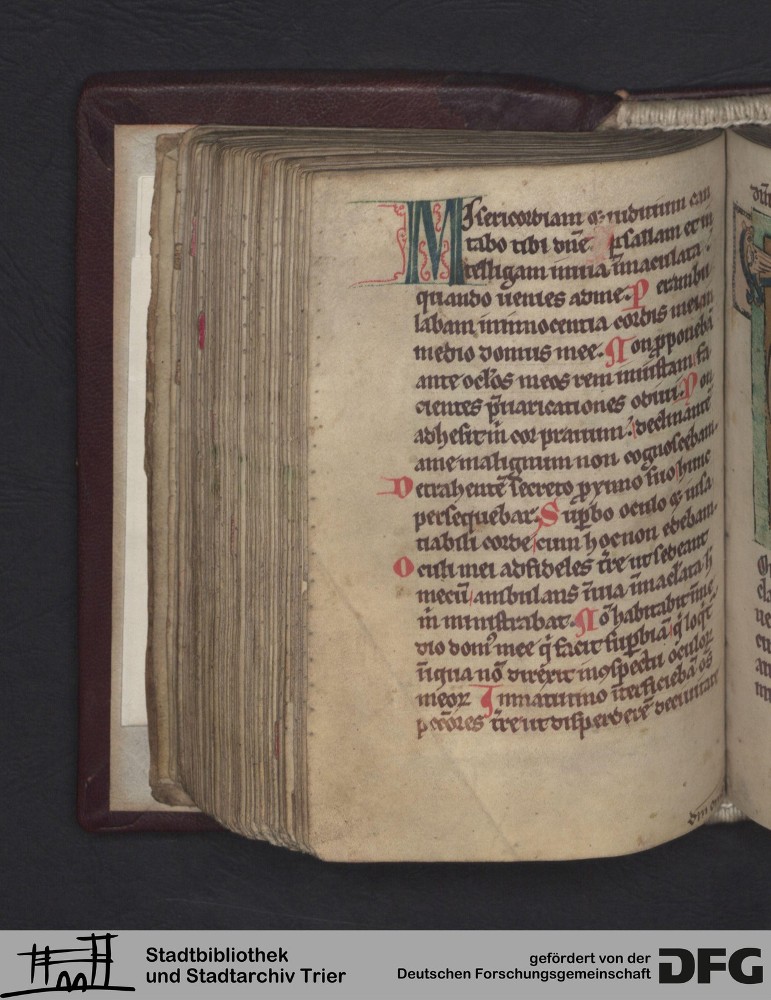 Misericordiam & iudicium can
tabo tibi dñe psallam et in
telligam in uia īmaculata
quando uenies ad me. Perambu
labam in innocentia cordis mei in
medio domus mee. Non ꝓponebā
ante oclōs meos rem iniustam fa
cientes p̄uaricationes odiui. Non
adhesit m̄ cor prauum declinantē
a me malignum non cognoscebam.
Detrahentē secreto ꝓximo suo hunc
persequebar. Supbo oculo & insa
tiabili corde cum hoc non edebam.
Oculi mei ad fideles t̄re ut sedeant
mecū ambulans ī uia īmaclata h̄
m̄ ministrabat. Nō habitabit ī me
dio dom9 mee q̄ facit supbiā q̄ loq̄t
īiqua nō direxit in 9spectu oculoꝝ
meoꝝ In matutino īterficiebā oēs
pccōres t̄re ut disperderē de ciuitate
Stadtbibliothek
und Stadtarchiv Trier
gefördert von der
Deutschen Forschungsgemeinschaft
DFG